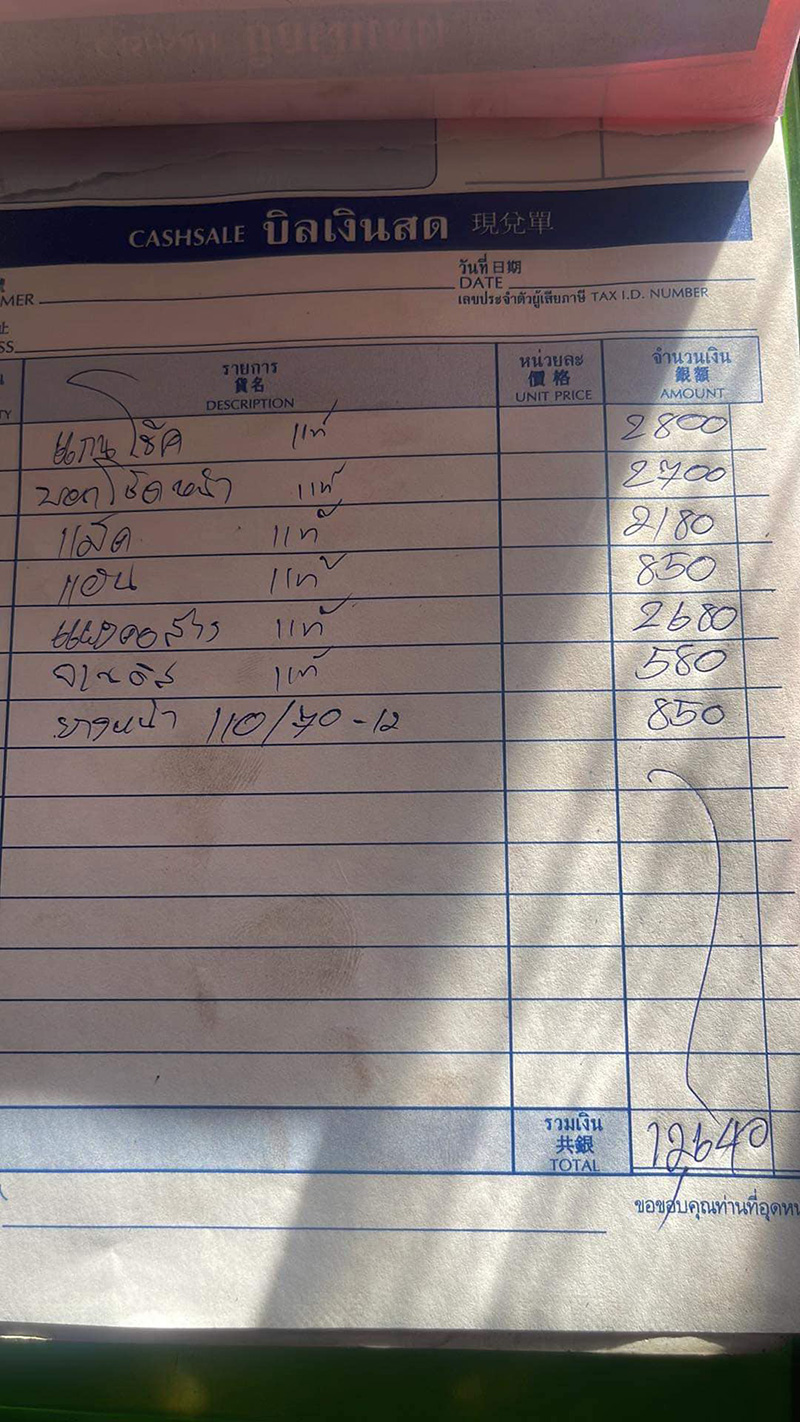 CASHSALE บิลเงินสด 現兌單
วันที่ 日期
DATE
MER
เลขประจำตัวผู้เสียภาษี TAX I.D. NUMBER
SS
รายการ หน่วยละ จำนวนเงิน
貨名 價格 銀額
TY DESCRIPTION UNIT PRICE AMOUNT
แกนโช๊ค แท้ 2800
บอกโช๊คหน้า แท้ 2700
แม๊ค แท้ 2180
แฮน แท้ 850
แผงคอล่าง แท้ 2680
จานดิส แท้ 580
ยางหน้า 110/70-12 850
รวมเงิน
共銀
TOTAL 12640
ขอขอบคุณท่านที่อุดหน